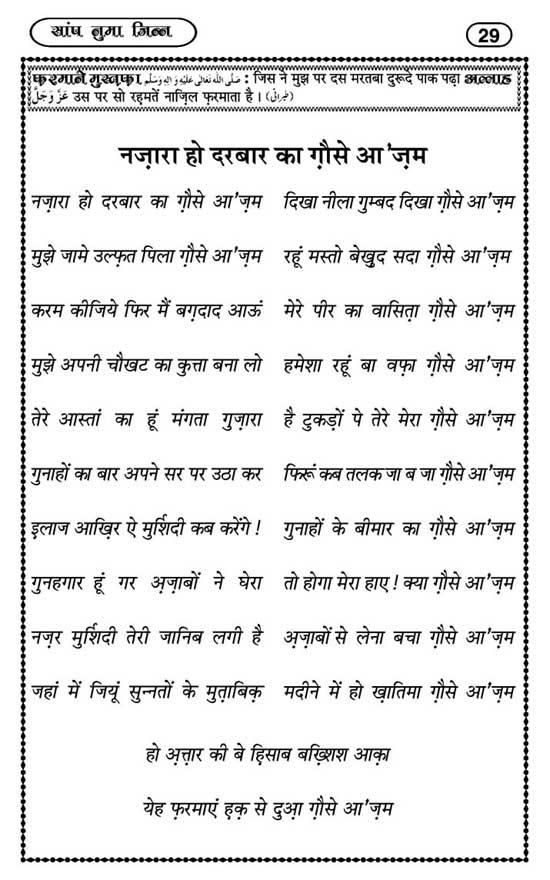 सांप नुमा जिन्न
29
फ़रमाने मुस्तफ़ा صَلَّى اللهُ تَعَالٰى عَلَيْهِ وَاٰلِهٖ وَسَلَّم : जिस ने मुझ पर दस मरतबा दुरूदे पाक पढ़ा अल्लाह
عَزَّوَجَلَّ उस पर सो रह़मतें नाज़िल फ़रमाता है । (طبرانی)
नज़ारा हो दरबार का ग़ौसे आ'ज़म
नज़ारा हो दरबार का ग़ौसे आ'ज़म दिखा नीला गुम्बद दिखा ग़ौसे आ'ज़म
मुझे जामे उल्फ़त पिला ग़ौसे आ'ज़म रहूं मस्तो बेख़ुद सदा ग़ौसे आ'ज़म
करम कीजिये फिर मैं बग़दाद आऊं मेरे पीर का वासित़ा ग़ौसे आ'ज़म
मुझे अपनी चौखट का कुत्ता बना लो हमेशा रहूं बा वफ़ा ग़ौसे आ'ज़म
तेरे आस्तां का हूं मंगता गुज़ारा है टुकड़ों पे तेरे मेरा ग़ौसे आ'ज़म
गुनाहों का बार अपने सर पर उठा कर फिरूं कब तलक जा ब जा ग़ौसे आ'ज़म
इलाज आख़िर ऐ मुर्शिदी कब करेंगे ! गुनाहों के बीमार का ग़ौसे आ'ज़म
गुनहगार हूं गर अ़ज़ाबों ने घेरा तो होगा मेरा हाए ! क्या ग़ौसे आ'ज़म
नज़र मुर्शिदी तेरी जानिब लगी है अ़ज़ाबों से लेना बचा ग़ौसे आ'ज़म
जहां में जियूं सुन्नतों के मुत़ाबिक़ मदीने में हो ख़ातिमा ग़ौसे आ'ज़म
हो अ़त़्त़ार की बे ह़िसाब बख़्शिश आक़ा
येह फ़रमाएं ह़क़ से दुआ़ ग़ौसे आ'ज़म